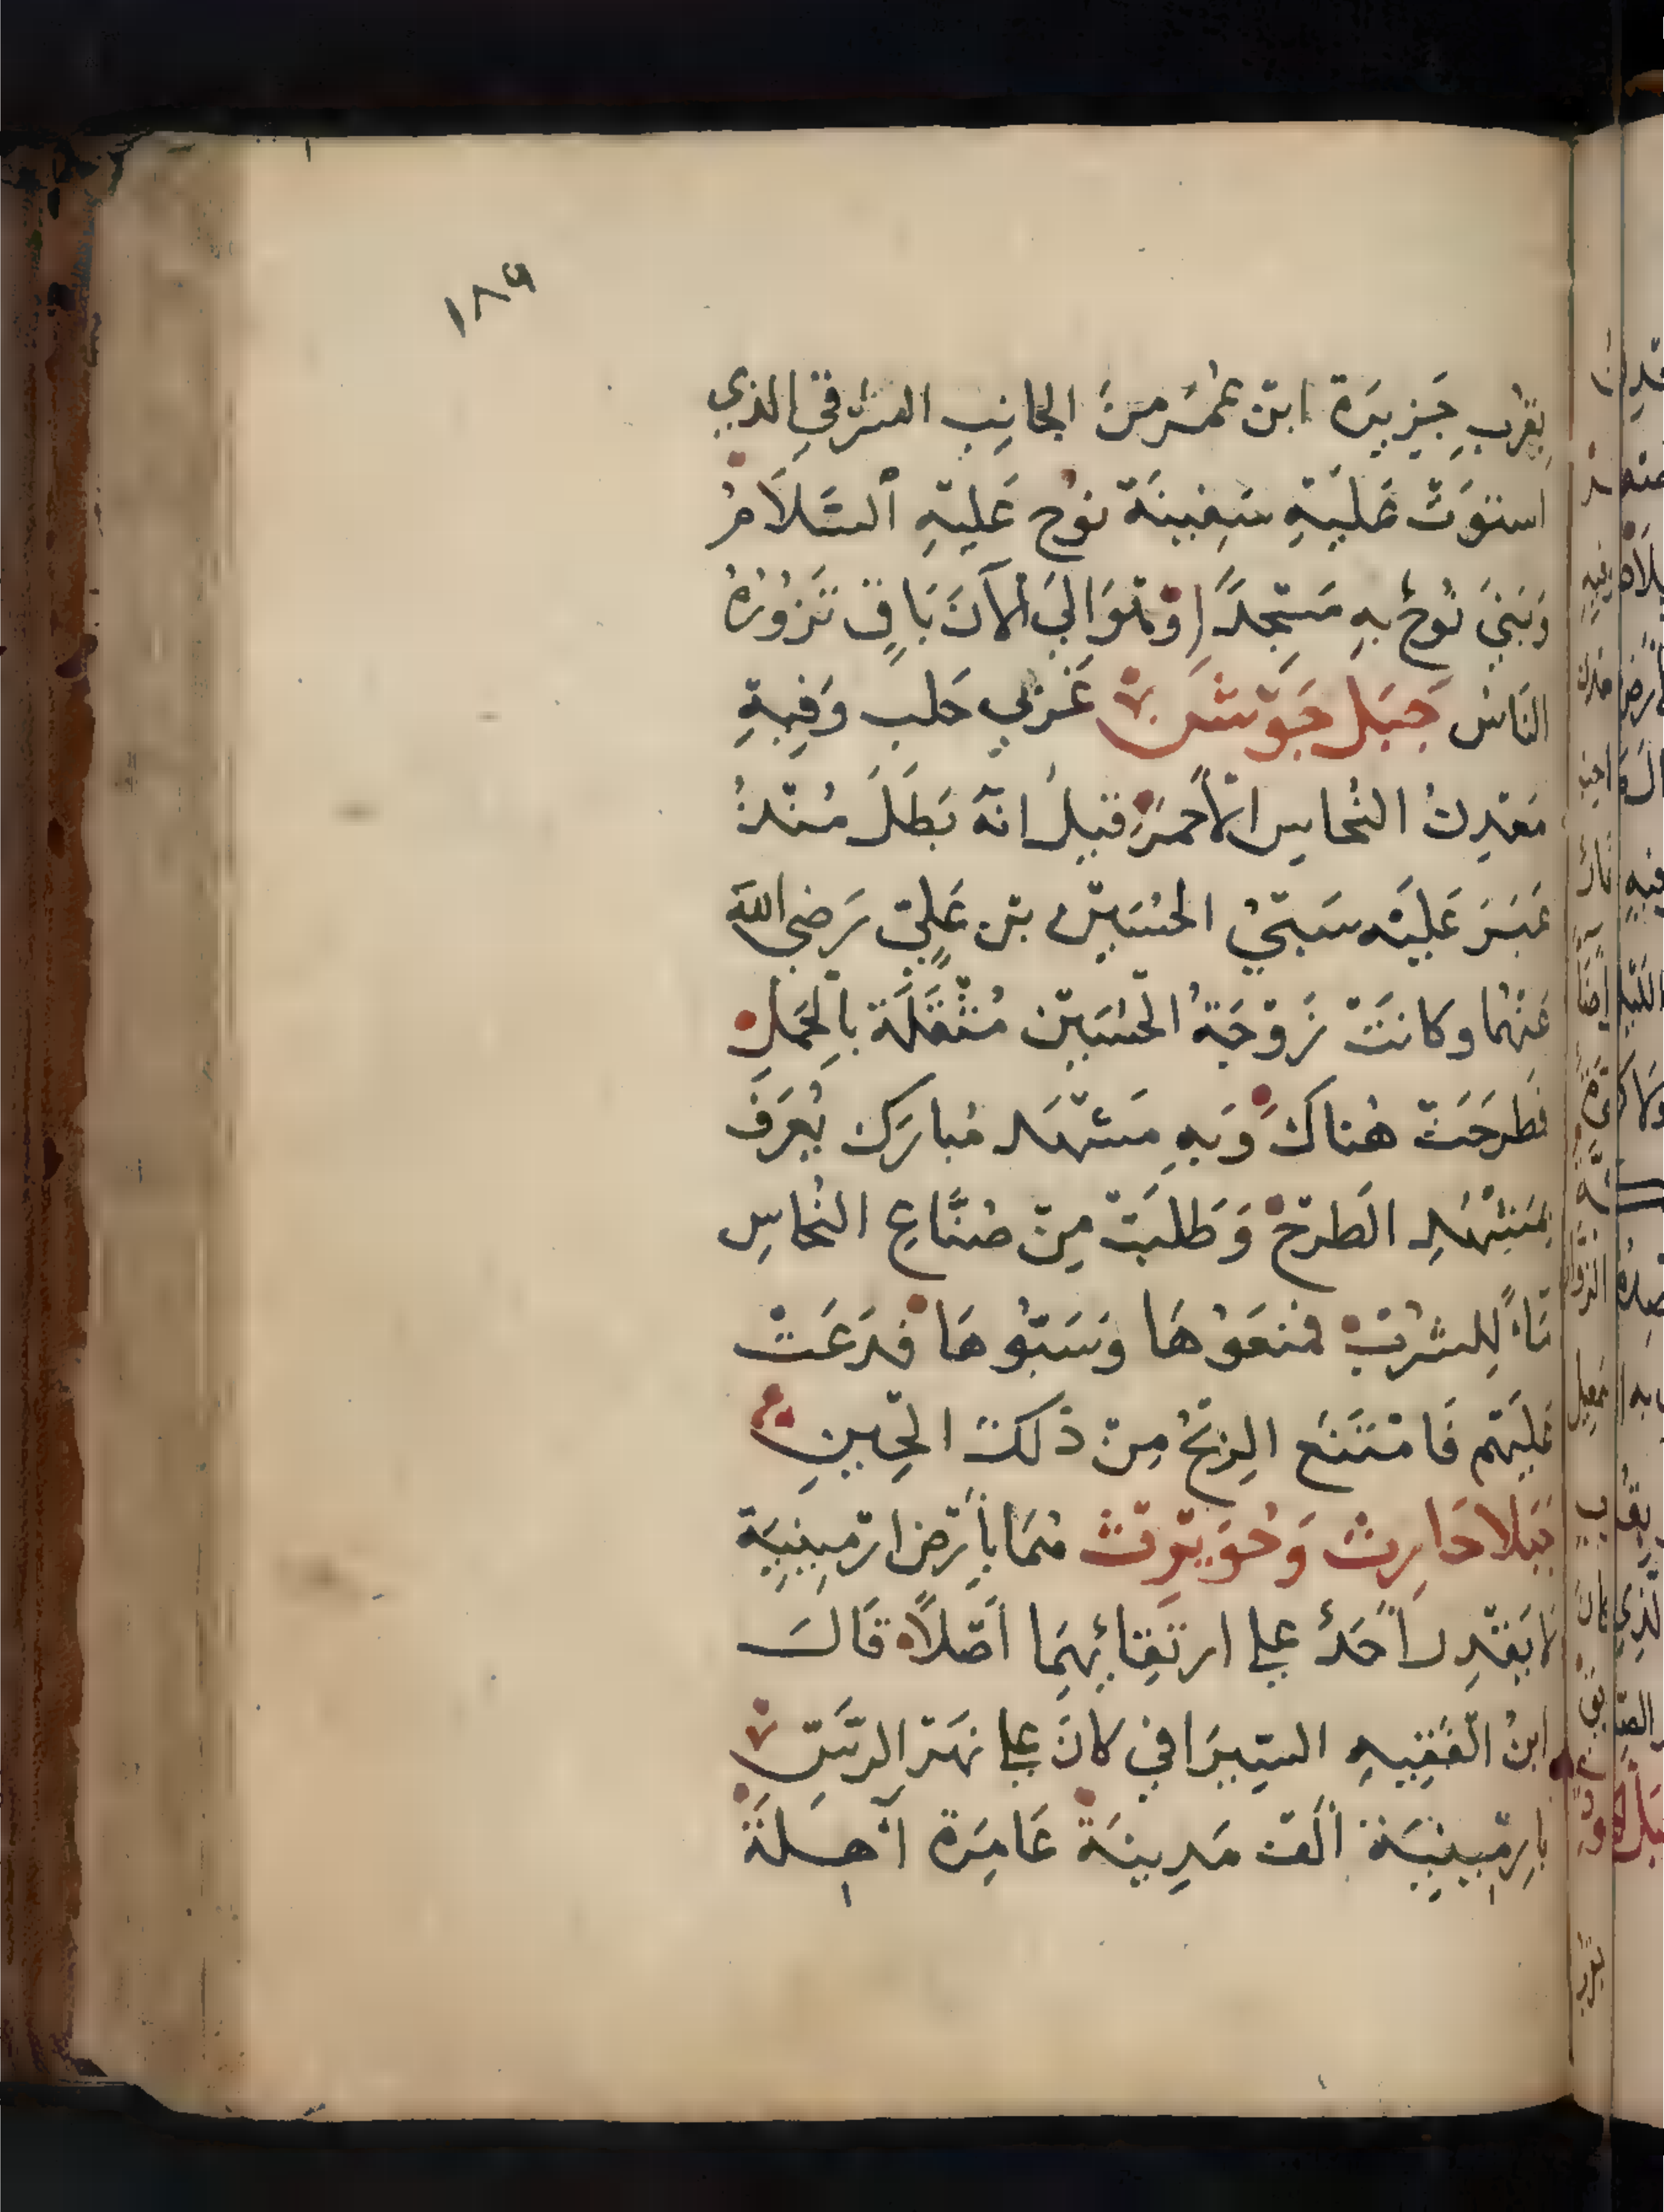 ١٨٩
بِقُربِ جَزِيرَة ابْن عُمَر مِنَ الجانِب الشرْقيِ الذي
استوَتْ عَلَيْهِ سَفِينَة نوُح عَليْهِ السَّلَامُ
وَبَنىَ نوُحُ بهِ مَسْجِدًا وَهْوَ اليَ الآنَ بَاقٍ تَزُورُهُ
الناسُ جَبَل جَوْشَن غَرْبي حَلب وَفِيهِ
مَعْدِنُ النُحاسِ الأحمَرِ قيلَ انهَ بَطَلَ مُنْذُ
عَبَرَ عَليْه سَبْيُ الحُسَيْن بْن عَلِيّ رَضي الله
عَنْهُما وكانَتْ زَوْجَةُ الحُسَيْن مُثْقَلَة بالحَمْلِ
فطرَحَتْ هُناكَ وَبهِ مَشْهَد مُبارَك يُعرَف
بمَشْهَدِ الطَرْحْ وَطَلبَتْ مِنْ صُنَّاعِ النُحاسِ
مَاءً لِلشُرْبْ فمنعَوُهَا وَسَبُّوهَا فدَعَتْ
عَليْهم فَامْتَنَعَ الرِبْحُ مِنْ ذَلكَ الحِينِ
جَبَلا حَارِث وَحُوَيْرِث هُمَا بأرْض ارْمِينيَة
لا يَقْدِر أحَدُ علي ارتقائهِمَا أصْلاً قَالَ
ابنُ الفَقِيهِ السّيرَافي كانَ علي نهْر الرَّسّ
بارْمِينيَة ألْف مَدِينَة عَامِرَة آهِلَة